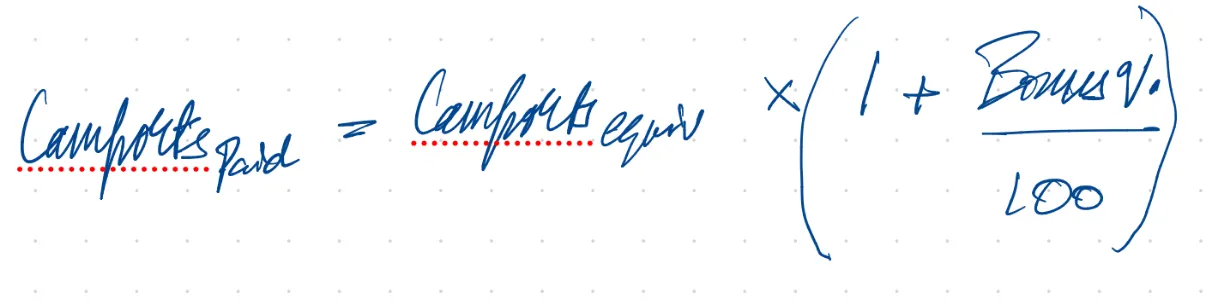 Camports paid = Camports equiv × (1 + Bonus % / 100)